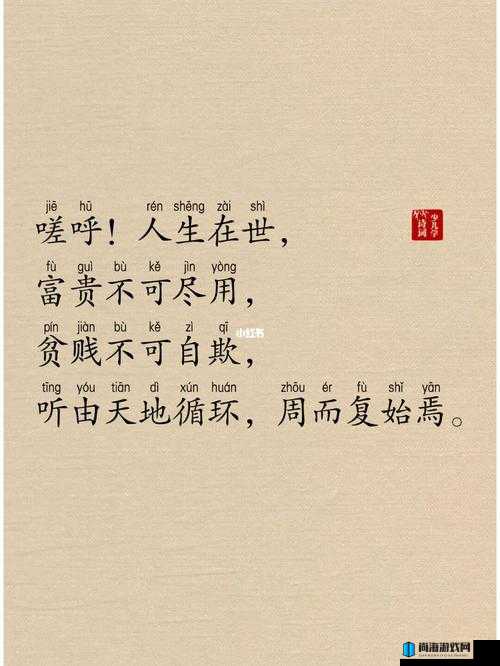 jiē hū rén shēng zài shì
嗟呼！人生在世，
fù guì bù kě jìn yòng
富贵不可尽用，
pín jiàn bù kě zì qī
贫贱不可自欺，
tīng yóu tiān dì xún huán zhōu ér fù shǐ yān
听由天地循环，周而复始焉。
少儿学
诗词
小红书
尚海游戏网